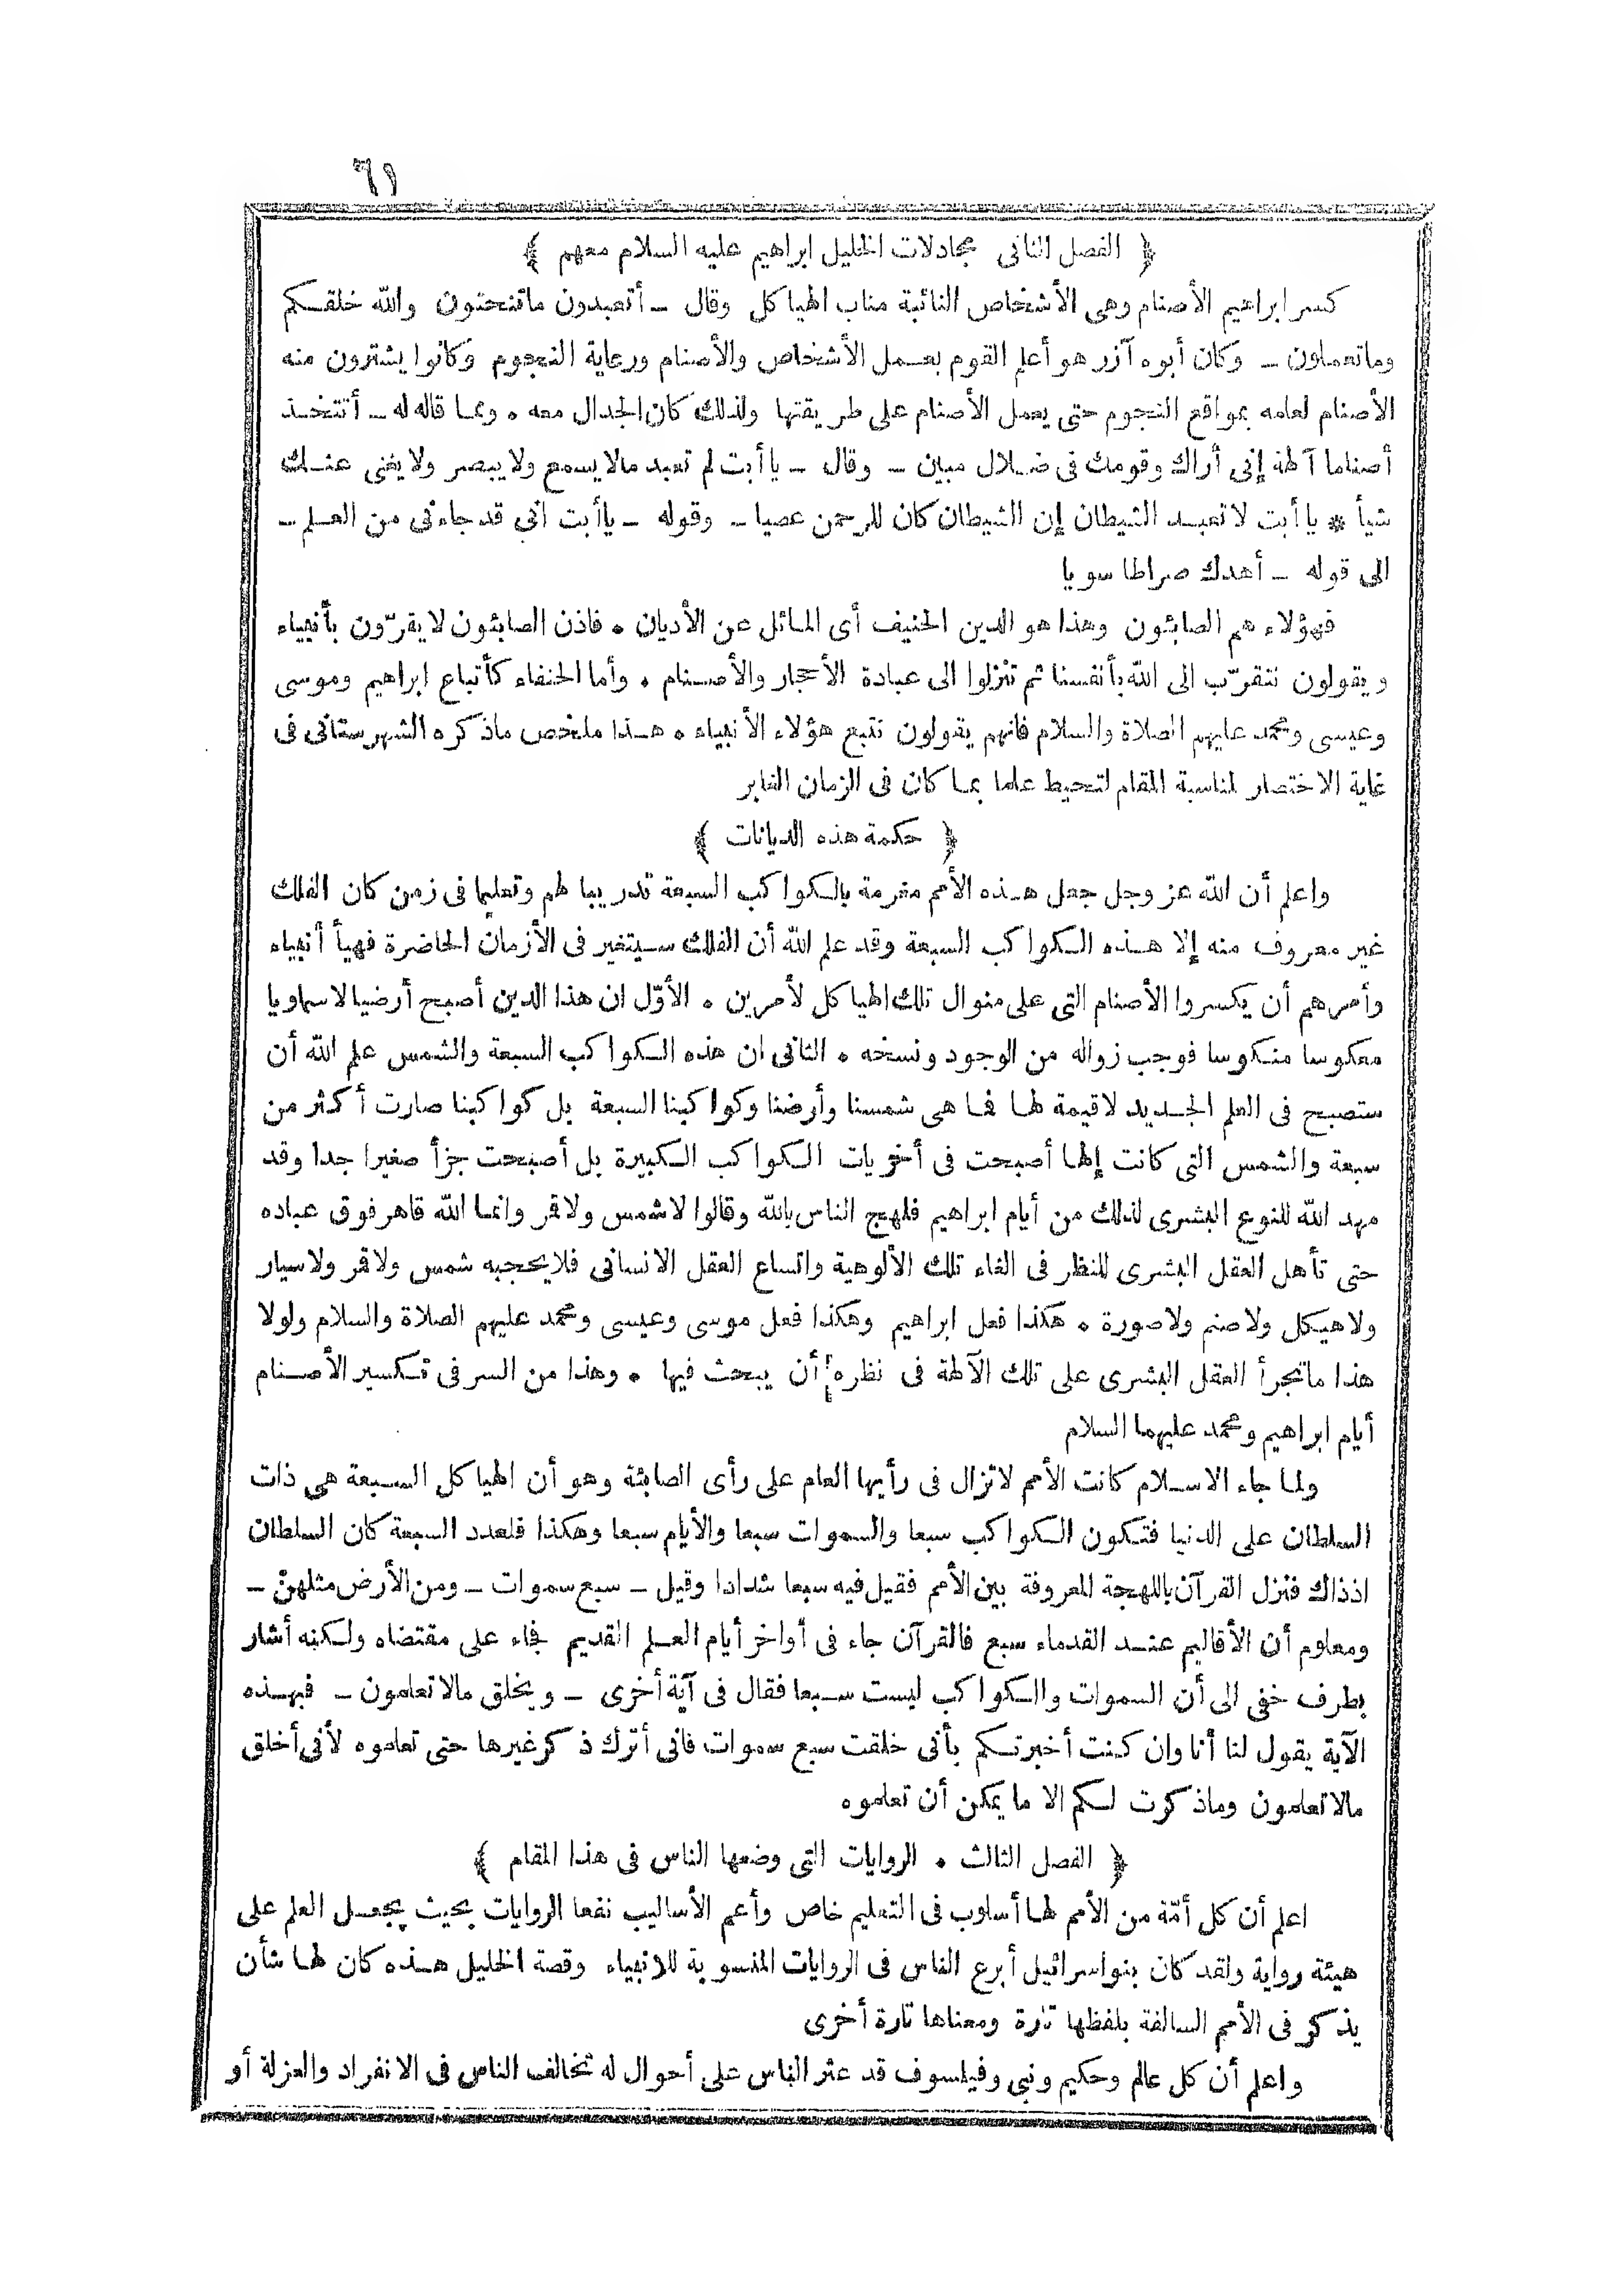 ٦١
﴿ الفصل الثانى مجادلات الخليل ابراهيم عليه السلام معهم ﴾
كسر ابراهيم الأصنام وهى الأشخاص النائبة مناب الهيا كل وقال ـ أتعبدون ماتنحتون والله خلقكم
وماتعملون ـ وكان أبوه آزر هو أعلم القوم بعمل الأشخاص والأصنام ورعاية النجوم وكانوا يشترون منه
الأصنام لعلمه بمواقع النجوم حتى يعمل الأصنام على طريقتها ولذلك كان الجدال معه . ومما قاله له ـ أتتخذ
أصناما آلهة إنى أراك وقومك فى ضلال مبين ـ وقال ـ ياأبت لم تعبد مالا يسمع ولا يبصر ولا يغنى عنك
شيأ * ياأبت لا تعبد الشيطان إن الشيطان كان للرحمن عصيا ـ وقوله ـ ياأبت انى قد جاءنى من العلم ـ
الى قوله ـ أهدك صراطا سويا
فهؤلاء هم الصابئون وهذا هو الدين الحنيف أى المائل عن الأديان . فاذن الصابئون لا يقرّون بأنبياء
ويقولون نتقرّب الى الله بأنفسنا ثم تنزلوا الى عبادة الأحجار والأصنام . وأما الحنفاء كأتباع ابراهيم وموسى
وعيسى ومحمد عليهم الصلاة والسلام فانهم يقولون نتبع هؤلاء الأنبياء . هذا ملخص ماذكره الشهرستانى فى
غاية الاختصار لمناسبة المقام لتحيط علما بما كان فى الزمان الغابر
﴿ حكمة هذه الديانات ﴾
واعلم أن الله عز وجل جعل هذه الأمم مغرمة بالكواكب السبعة تدريبا لهم وتعليما فى زمن كان الفلك
غير معروف منه إلا هذه الكواكب السبعة وقد علم الله أن الفلك سيتغير فى الأزمان الحاضرة فهيأ أنبياء
وأمرهم أن يكسروا الأصنام التى على منوال تلك الهيا كل لأمرين . الأوّل ان هذا الدين أصبح أرضيا لا سماويا
معكوسا منكوسا فوجب زواله من الوجود ونسخه . الثانى ان هذه الكواكب السبعة والشمس علم الله أن
ستصبح فى العلم الجديد لاقيمة لها فما هى شمسنا وأرضنا وكواكبنا السبعة بل كواكبنا صارت أكثر من
سبعة والشمس التى كانت إلها أصبحت فى أخريات الكواكب الكبيرة بل أصبحت جزأ صغيرا جدا وقد
مهد الله للنوع البشرى لذلك من أيام ابراهيم فلهج الناس بالله وقالوا لاشمس ولاقمر وانما الله قاهر فوق عباده
حتى تأهل العقل البشرى للنظر فى الغاء تلك الألوهية واتساع العقل الانسانى فلايحجبه شمس ولاقمر ولاسيار
ولاهيكل ولاصنم ولاصورة . هكذا فعل ابراهيم وهكذا فعل موسى وعيسى ومحمد عليهم الصلاة والسلام ولولا
هذا ماتجرأ العقل البشرى على تلك الآلهة فى نظره أن يبحث فيها . وهذا من السر فى تكسير الأصنام
أيام ابراهيم ومحمد عليهما السلام
ولما جاء الاسلام كانت الأمم لاتزال فى رأيها العام على رأى الصابئة وهو أن الهيا كل السبعة هى ذات
السلطان على الدنيا فتكون الكواكب سبعا والسموات سبعا والأيام سبعا وهكذا فلعدد السبعة كان السلطان
اذ ذاك فنزل القرآن باللهجة المعروفة بين الأمم فقيل فيه سبعا شدادا وقيل ـ سبع سموات ـ ومن الأرض مثلهنّ ـ
ومعلوم أن الأقاليم عند القدماء سبع فالقرآن جاء فى أواخر أيام العلم القديم فجاء على مقتضاه ولكنه أشار
بطرف خفى الى أن السموات والكواكب ليست سبعا فقال فى آية أخرى ـ ويخلق مالاتعلمون ـ فبهذه
الآية يقول لنا أنا وان كنت أخبرتكم بأنى خلقت سبع سموات فانى أترك ذكر غيرها حتى تعلموه لأنى أخلق
مالاتعلمون وماذكرت لكم الا ما يمكن أن تعلموه
﴿ الفصل الثالث . الروايات التى وضعها الناس فى هذا المقام ﴾
اعلم أن كل أمّة من الأمم لها أسلوب فى التعليم خاص وأعم الأساليب نفعا الروايات بحيث يجعل العلم على
هيئة رواية ولقد كان بنواسرائيل أبرع الناس فى الروايات المنسوبة للانبياء وقصة الخليل هذه كان لها شأن
يذكر فى الأمم السالفة بلفظها تارة ومعناها تارة أخرى
واعلم أن كل عالم وحكيم ونبى وفيلسوف قد عثر الناس على أحوال له تخالف الناس فى الانفراد والعزلة أو